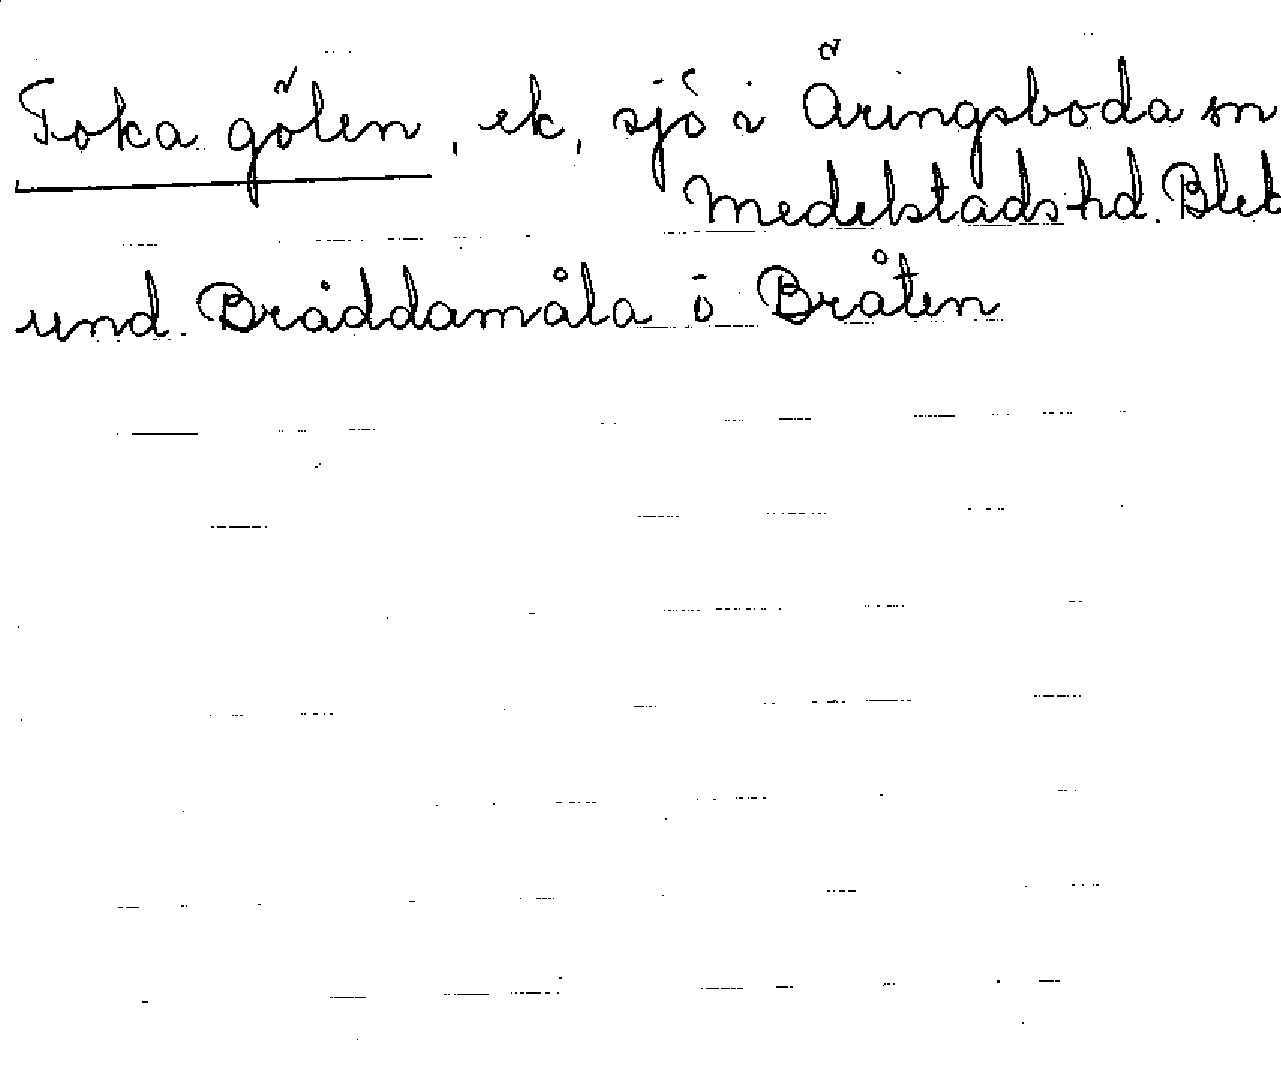 Toka gölen, ek, sjö i Åringsboda sn
Medelstads hd. Blek
und. Bräddamåla ö Bråten